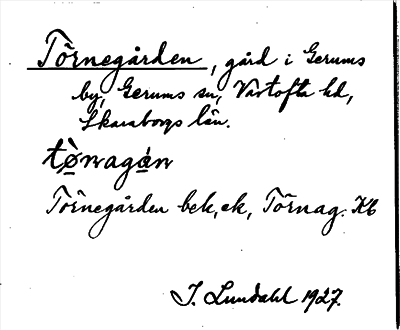 Törnegården, gård i Gerums
by, Gerums sn, Vartofta hd,
Skaraborgs län.
tø̀nagá̠n
Törnegården bek, ek, Törnag. Kb
I. Lundahl 1927.